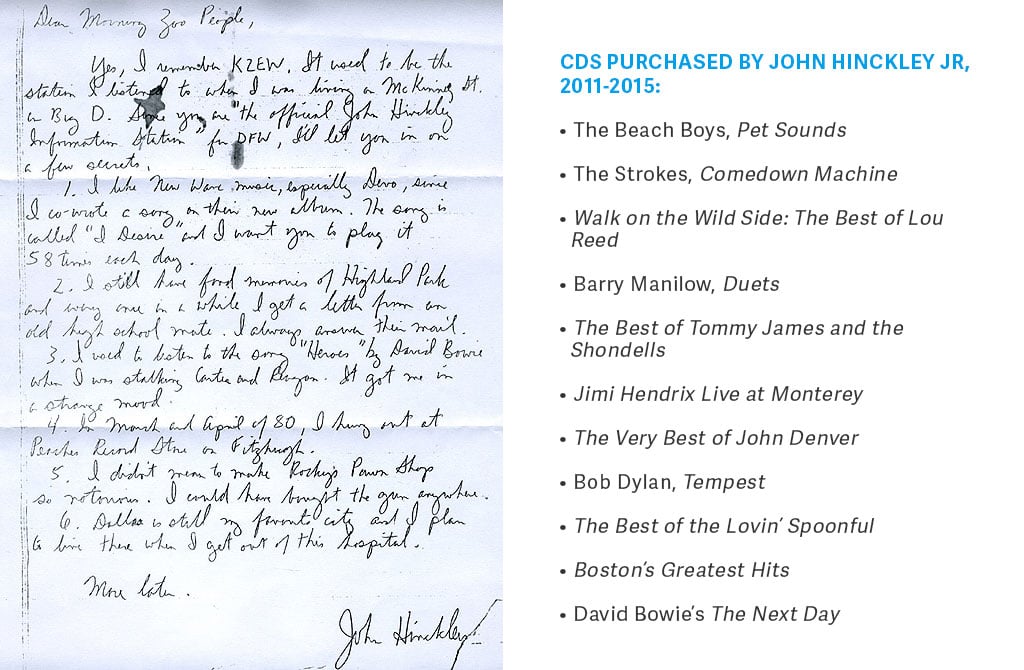 Dear Morning Zoo People,
Yes, I remember KZEW. It used to be the
station I listened to when I was living on McKinney St.
in Big D. Since you are the "official John Hinckley
Information Station" for DFW, I'll let you in on
a few secrets.
1. I like New Wave music, especially Devo, since
I co-wrote a song on their new album. The song is
called "I Desire" and I want you to play it
58 times each day.
2. I still have fond memories of Highland Park
and every once in a while I get a letter from an
old high school mate. I always answer their mail.
3. I used to listen to the song "Heroes" by David Bowie
when I was stalking Carter and Reagan. It got me in
a strange mood.
4. In March and April of 80, I hung out at
Peaches Record Store on Fitzhugh.
5. I didn't mean to make Rocky's Pawn Shop
so notorious. I could have bought the gun anywhere.
6. Dallas is still my favorite city and I plan
to live there when I get out of this hospital.
More later.
John Hinckley
CDS PURCHASED BY JOHN HINCKLEY JR,
2011-2015:
• The Beach Boys, Pet Sounds
• The Strokes, Comedown Machine
• Walk on the Wild Side: The Best of Lou
Reed
• Barry Manilow, Duets
• The Best of Tommy James and the
Shondells
• Jimi Hendrix Live at Monterey
• The Very Best of John Denver
• Bob Dylan, Tempest
• The Best of the Lovin' Spoonful
• Boston's Greatest Hits
• David Bowie's The Next Day